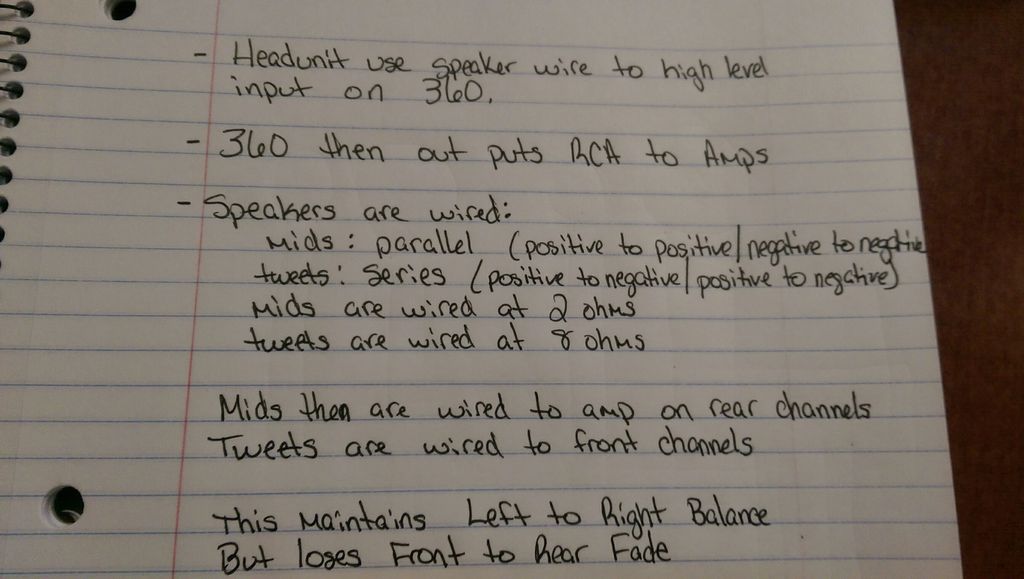 - Headunit use speaker wire to high level
input on 360.
- 360 then out puts RCA to Amps
- Speakers are wired:
Mids: parallel (positive to positive/negative to negative
tweets: series (positive to negative/positive to negative)
Mids are wired at 2 ohms
tweets are wired at 8 ohms
Mids then are wired to amp on rear channels
Tweets are wired to front channels
This Maintains Left to Right Balance
But loses Front to Rear Fade